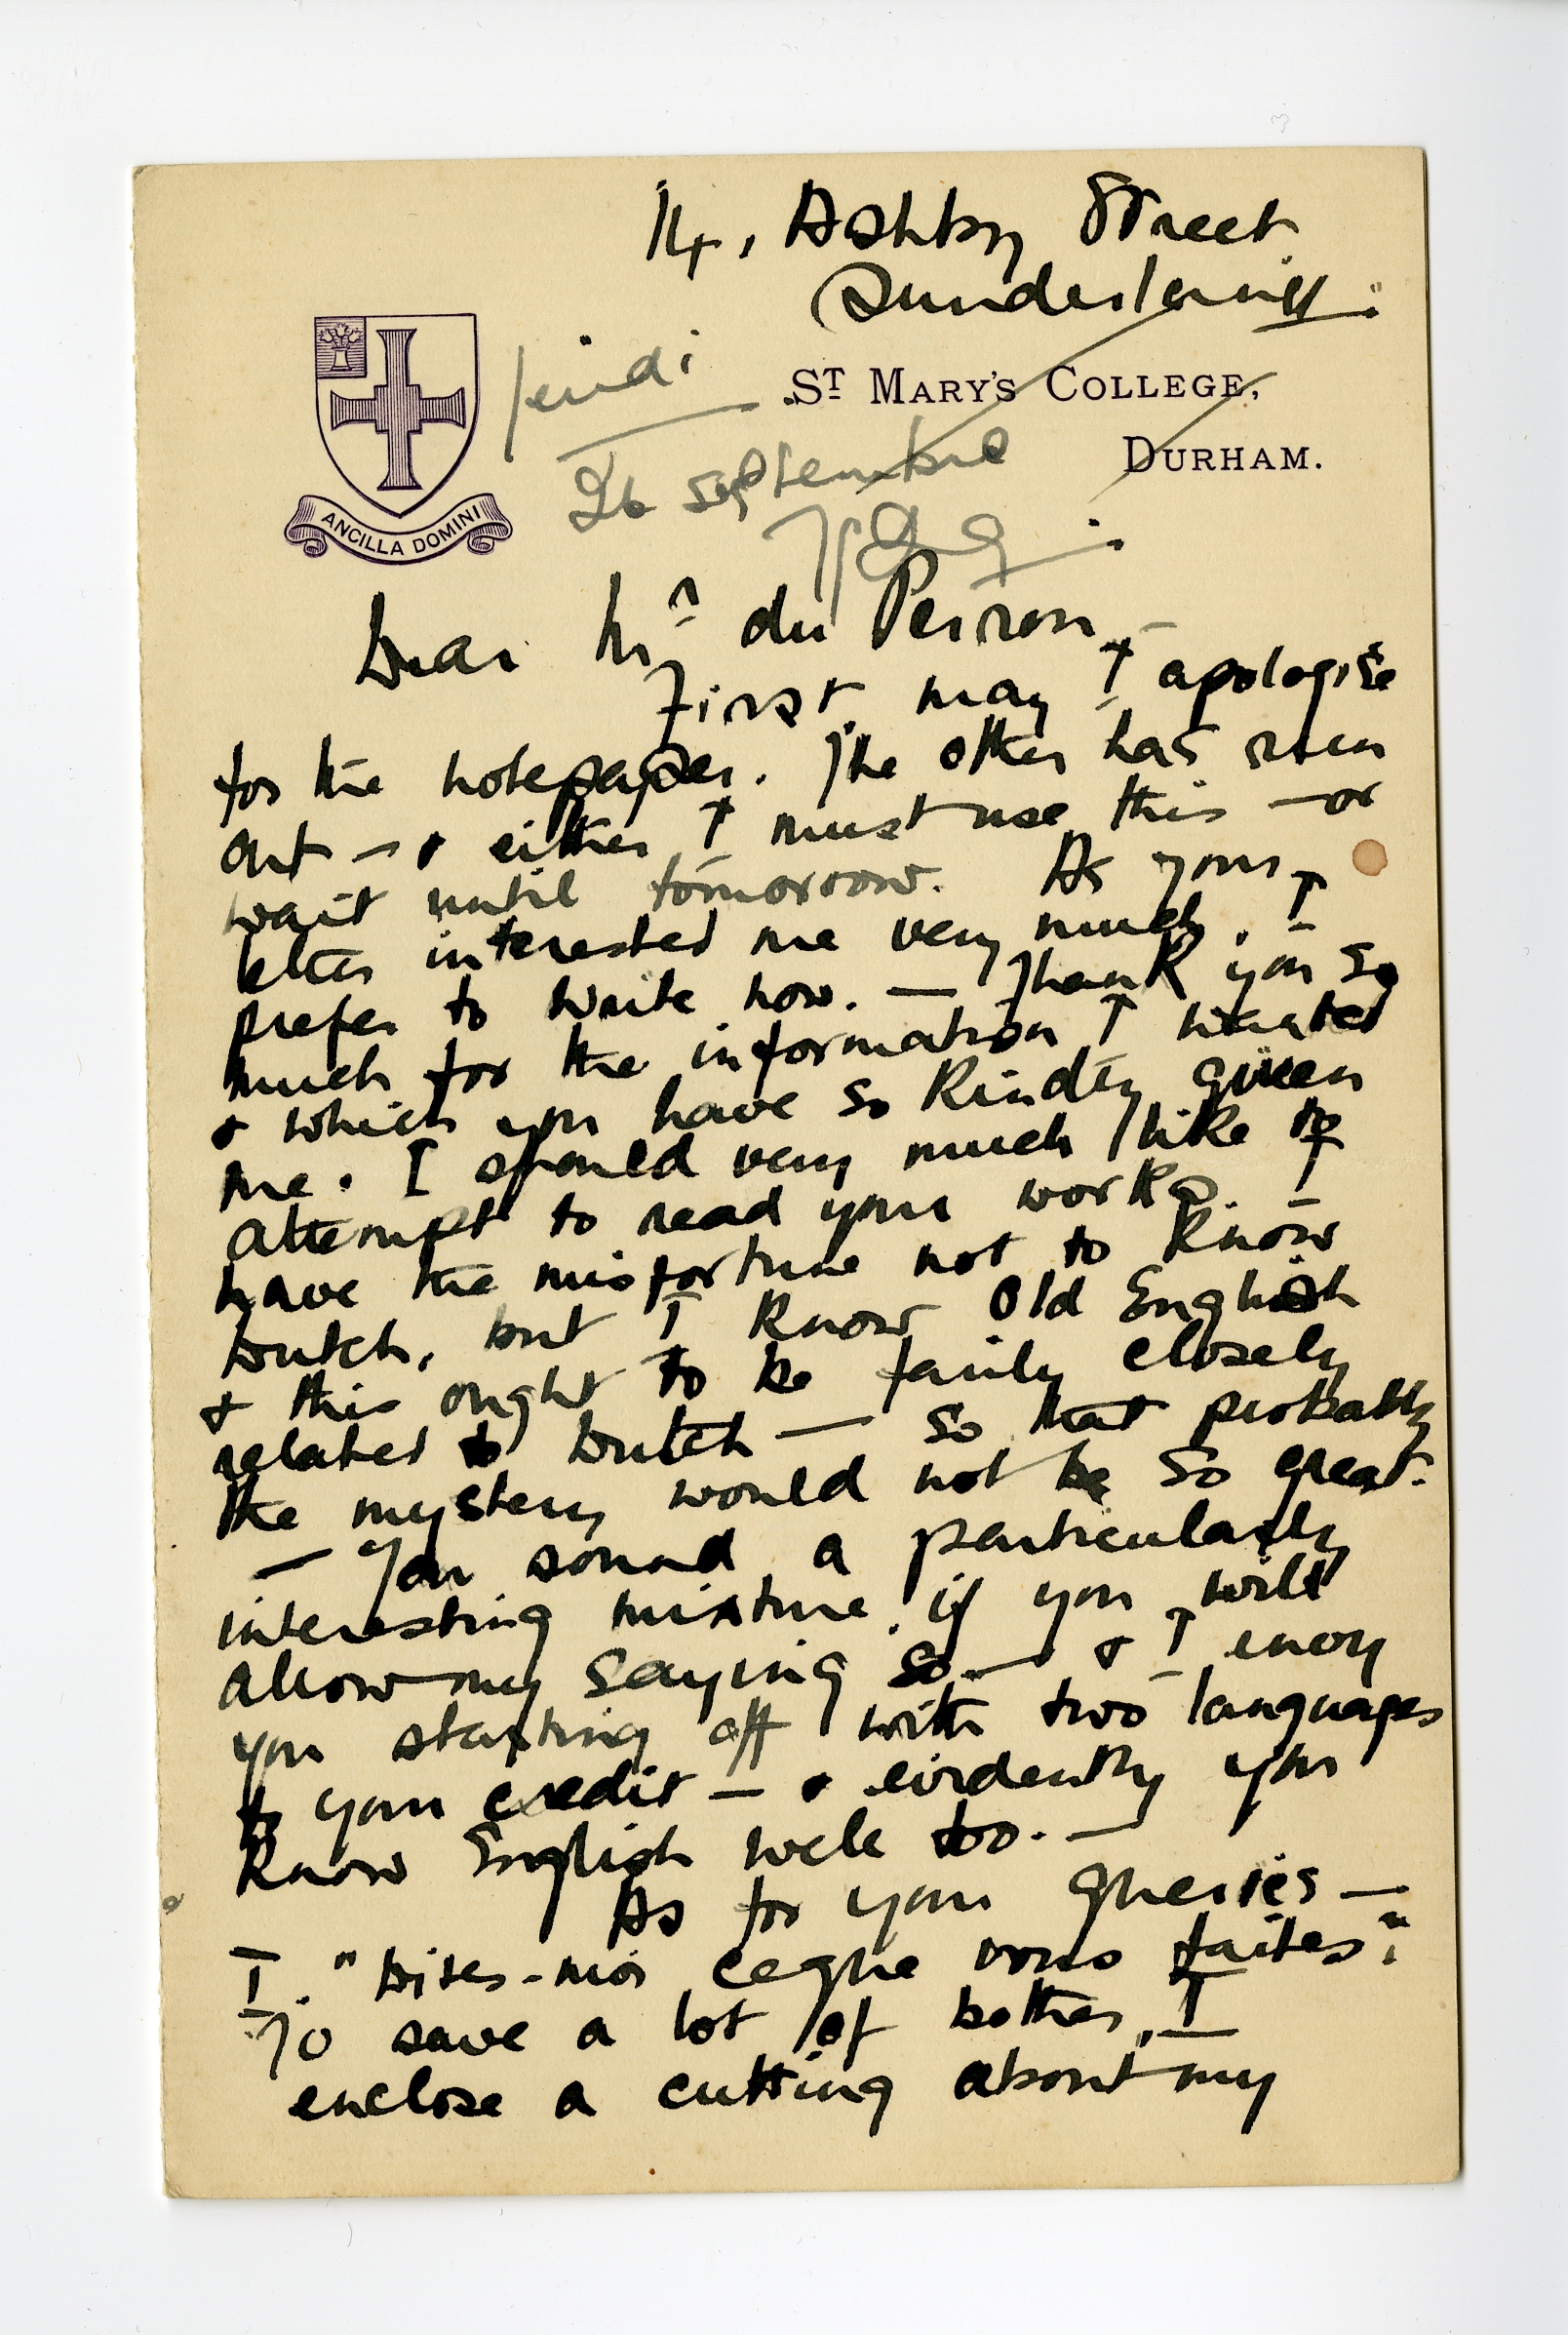 14, Ashby Street
Sunderland.
jeudi
ST MARY'S COLLEGE,
26 septembre
DURHAM.
ANCILLA DOMINI
Dear Mr du Perron,
First may I apologise
for the notepaper. The other has run
out — & either I must use this — or
wait until tomorrow. As your
letter interested me very much, I
prefer to write now. — Thank you so
much for the information I wanted
& which you have so kindly given
me. I should very much like to
attempt to read your works. I
have the misfortune not to know
Dutch, but I know Old English
& this ought to be fairly closely
related to Dutch — so that probably
the mystery would not be so great.
— You sound a particularly
interesting mixture, if you will
allow my saying so — & I envy
you starting off with two languages
to your credit — & evidently you
know English well too. —
As for your queries —
I. "Dites-moi ce que vous faites".
To save a lot of bother, I
enclose a cutting about my